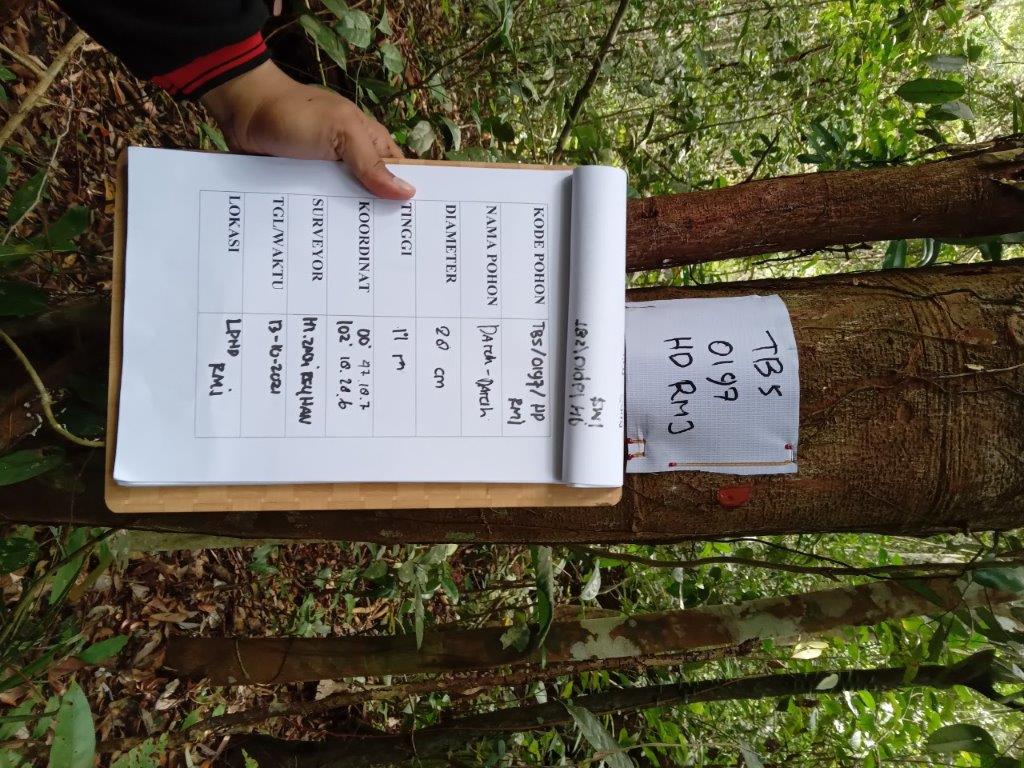 TBS
0197
HD RMJ
KODE POHON TBS/0197/ HD
RMJ
NAMA POHON DARAH-DARAH
DIAMETER 20 cm
TINGGI 17 m
KOORDINAT 00° 47. 10. 7
102. 10. 28. 6
SURVEYOR
TGL/WAKTU 13-10-2021
LOKASI LPHD
RMJ